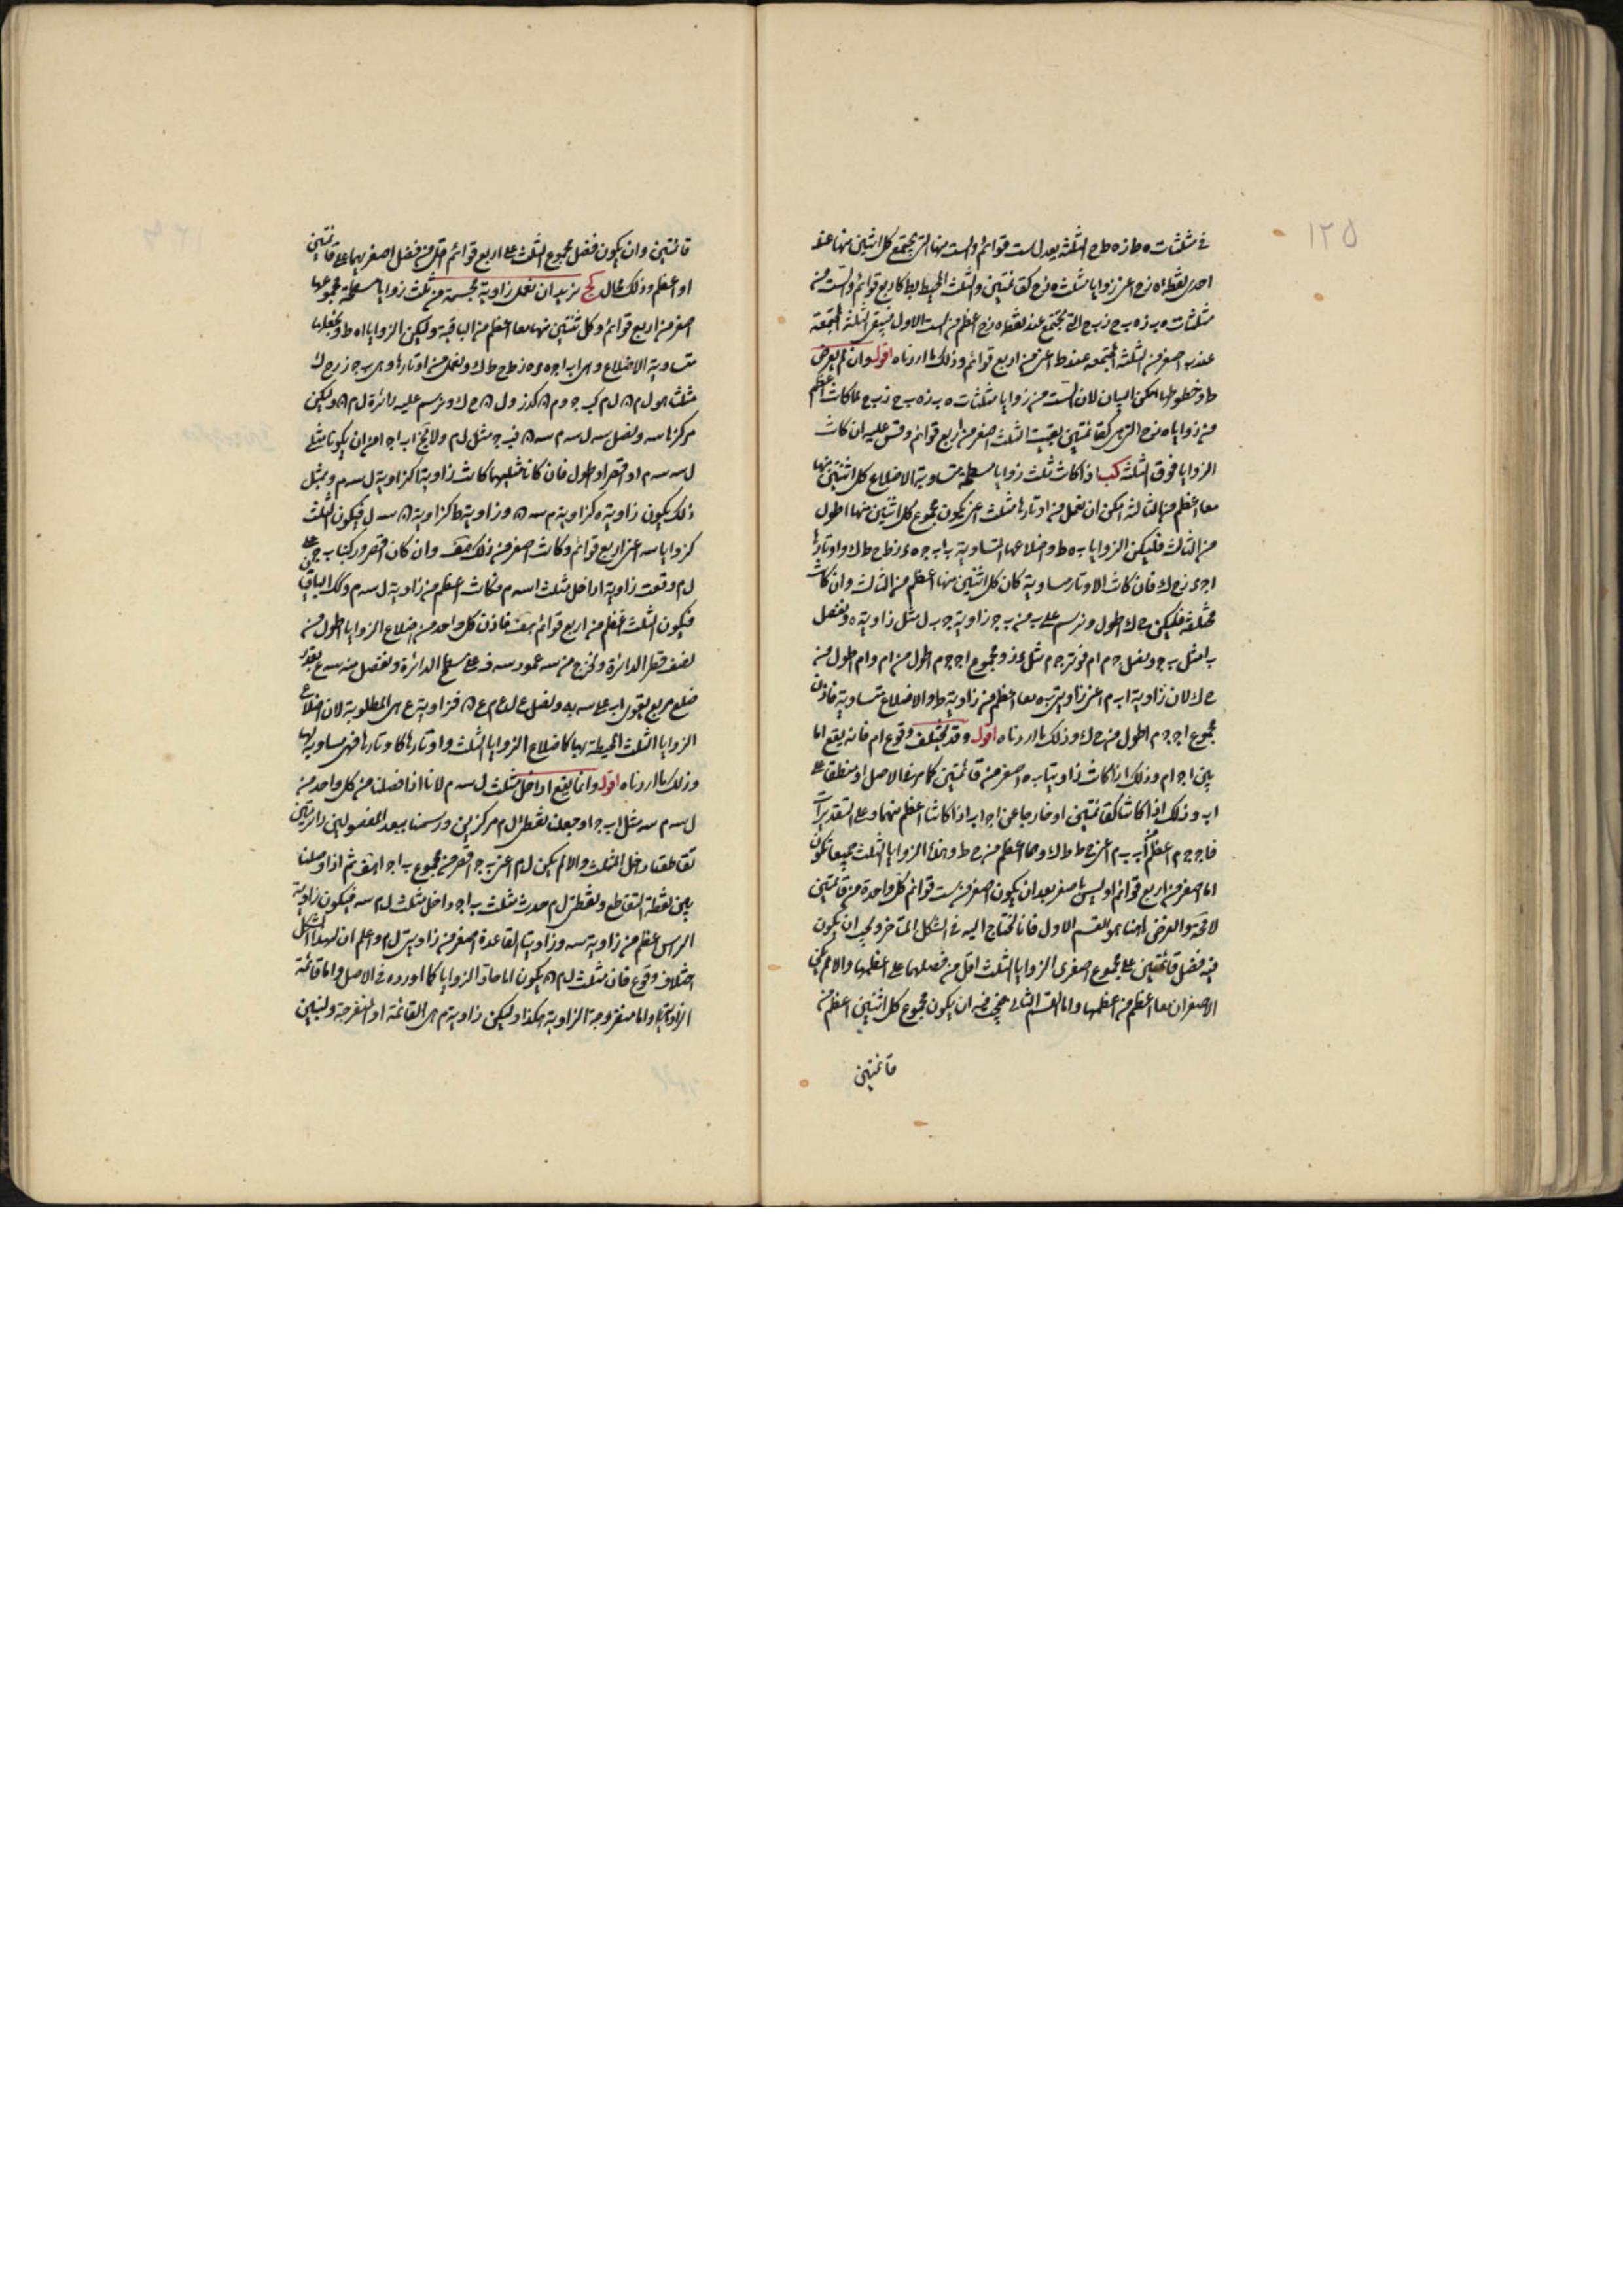 ١٢٥
في مثلثات ه ط ز ه ط ح الثلثة يعدل ست قوائم والست منها التي يجتمع كل اثنين منها عند
احدى نقط ه ز ح اعني زوايا مثلث ه ز ح كقائمتين والثلث المحيطة بط كاربع قوائم والست من
مثلثات ه ب ز ه ب ح ز ب ح التي تجتمع عند نقط ه ز ح اعظم من الست الاول فتبقى الثلثة المجتمعة
عند ب اصغر من الثلثة المجتمعة عند ط اعني من اربع قوائم وذلك ما اردناه اقول وان لم يعرض
ط وخطوطها امكن البيان لان الست من زوايا مثلثات ه ب ز ه ب ح ز ب ح لما كانت اعظم
من زوايا ه ز ح التي هي كقائمتين بقيت الثلث اصغر من اربع قوائم وقس عليه ان كانت
الزوايا فوق الثلثة كب اذا كانت ثلث زوايا مسطحة متساوية الاضلاع كل اثنتين منها
معا اعظم من الثالثة امكن ان نعمل من اوتارها مثلث اعني يكون مجموع كل اثنين منها اطول
من الثالث فليكن الزوايا ب ه ط واضلاعها المتساوية ب ا ب ج ه د ه ز ط ح ط ك واوتارها
ا ج د ز ح ك فان كانت الاوتار متساوية كان كل اثنين منها اعظم من الثالث وان كانت
مختلفة فليكن ح ك اطول ونرسم على ب من ب ج زاوية ج ب ل مثل زاوية ه ونفصل
ب م مثل ب ج ونصل ج م ا م فوتر ج م مثل د ز ومجموع ا ج ج م اطول من ا م وا م اطول من
ح ك لان زاوية ا ب م اعني زاويتي ب ه معا اعظم من زاوية ط والاضلاع متساوية فاذن
مجموع ا ج ج م اطول من ح ك وذلك ما اردناه اقول وقد يختلف وقوع ا م فانه يقع اما
بين ا ج ا م وذلك اذا كانت زاويتا ب ه اصغر من قائمتين كما مر في الاصل او منطبقا على
ا ب وذلك اذا كانتا كقائمتين او خارجا عن ا ج ا ب اذا كانتا اعظم منهما وعلى التقديرات
فا ج ج م اعظم من ا ب ب م اعني ح ط ط ك وهما اعظم من ح ك وهذه الزوايا الثلث جميعا تكون
اما اصغر من اربع قوائم او ليس باصغر بعد ان يكون اصغر من ست قوائم كل واحدة من قائمتين
لا محة والغرض ههنا هو القسم الاول فانا نحتاج اليه في الشكل المتاخر ويجب ان يكون
فيه فضل قائمتين على مجموع اصغري الزوايا الثلث اقل من فضلهما على اعظمها والا لم يكن
الاصغران معا اعظم من اعظمها واما القسم الثاني فيجب فيه ان يكون مجموع كل اثنتين اعظم من
قائمتين
قائمتين وان يكون فضل مجموع الثلث على اربع قوائم اقل من فضل اصغريهما على قائمتين
او اعظم وذلك محال كج نريد ان نعمل زاوية مجسمة من ثلث زوايا مسطحة مجموعها
اصغر من اربع قوائم وكل ثنتين منها معا اعظم من الباقية وليكن الزوايا ا ه ط ونجعلها
متساوية الاضلاع وهي ا ب ا ج ه د ه ز ط ح ط ك ونعمل من اوتارها وهي ب ج د ز ح ك
مثلثا هو ل م ن ل م كب ج وم ن كد ز ول ن كح ك ونرسم عليه دائرة ل م ن وليكن
مركزها سه ونصل سه ل سه م سه ن فب ج مثل ل م ولا يخ ا ب ا ج اما ان يكونا مثل
ل سه سه م او اقصر او اطول فان كانا مثليهما كانت زاوية ا كزاوية ل سه م وبمثل
ذلك يكون زاوية ه كزاوية م سه ن وزاوية ط كزاوية ن سه ل فيكون الثلث
كزوايا سه اعني اربع قوائم وكانت اصغر من ذلك هف وان كان اقصر وركبنا ب ج على
ل م وقعت زاوية ا داخل مثلث ل سه م فكانت اعظم من زاوية ل سه م وكك البواقي
فيكون الثلث اعظم من اربع قوائم هف فاذن كل واحد من اضلاع الزوايا اطول من
نصف قطر الدائرة ونخرج من سه عمود سه ف على سطح الدائرة ونفصل منه سه ع بقدر
ضلع مربع يقوى ا ب على سه به ونصل ع ل ع م ع ن فزاوية ع هي المطلوبة لان اضلاع
الزوايا الثلث المحيطة بها كاضلاع الزوايا الثلث واوتارها كاوتارها فهي مساوية لها
وذلك ما اردناه اقول وانما يقع ا داخل مثلث ل سه م لانا اذا فصلنا من كل واحد من
ل سه م سه مثل ا ب ج ا وجعلنا نقطتي ل م مركزين ورسمنا ببعد المفصولين دائرتين
تقاطعتا داخل المثلث والا لم يكن ل م اعني ب ج اقصر من مجموع ب ا ج ا هف ثم اذا وصلنا
بين نقطة التقاطع ونقطتي ل م حدث مثلث ب ا ج داخل مثلث ل م سه فيكون زاوية
الراس اعظم من زاوية سه وزاويتا القاعدة اصغر من زاويتي ل م واعلم ان لهذا الشكل
اختلاف وقوع فان مثلث ل م ن يكون اما حاد الزوايا كما اورده في الاصل واما قائمة
الزاوية واما منفرجة الزاوية هكذا وليكن زاوية م هي القائمة او المنفرجة ولنبين